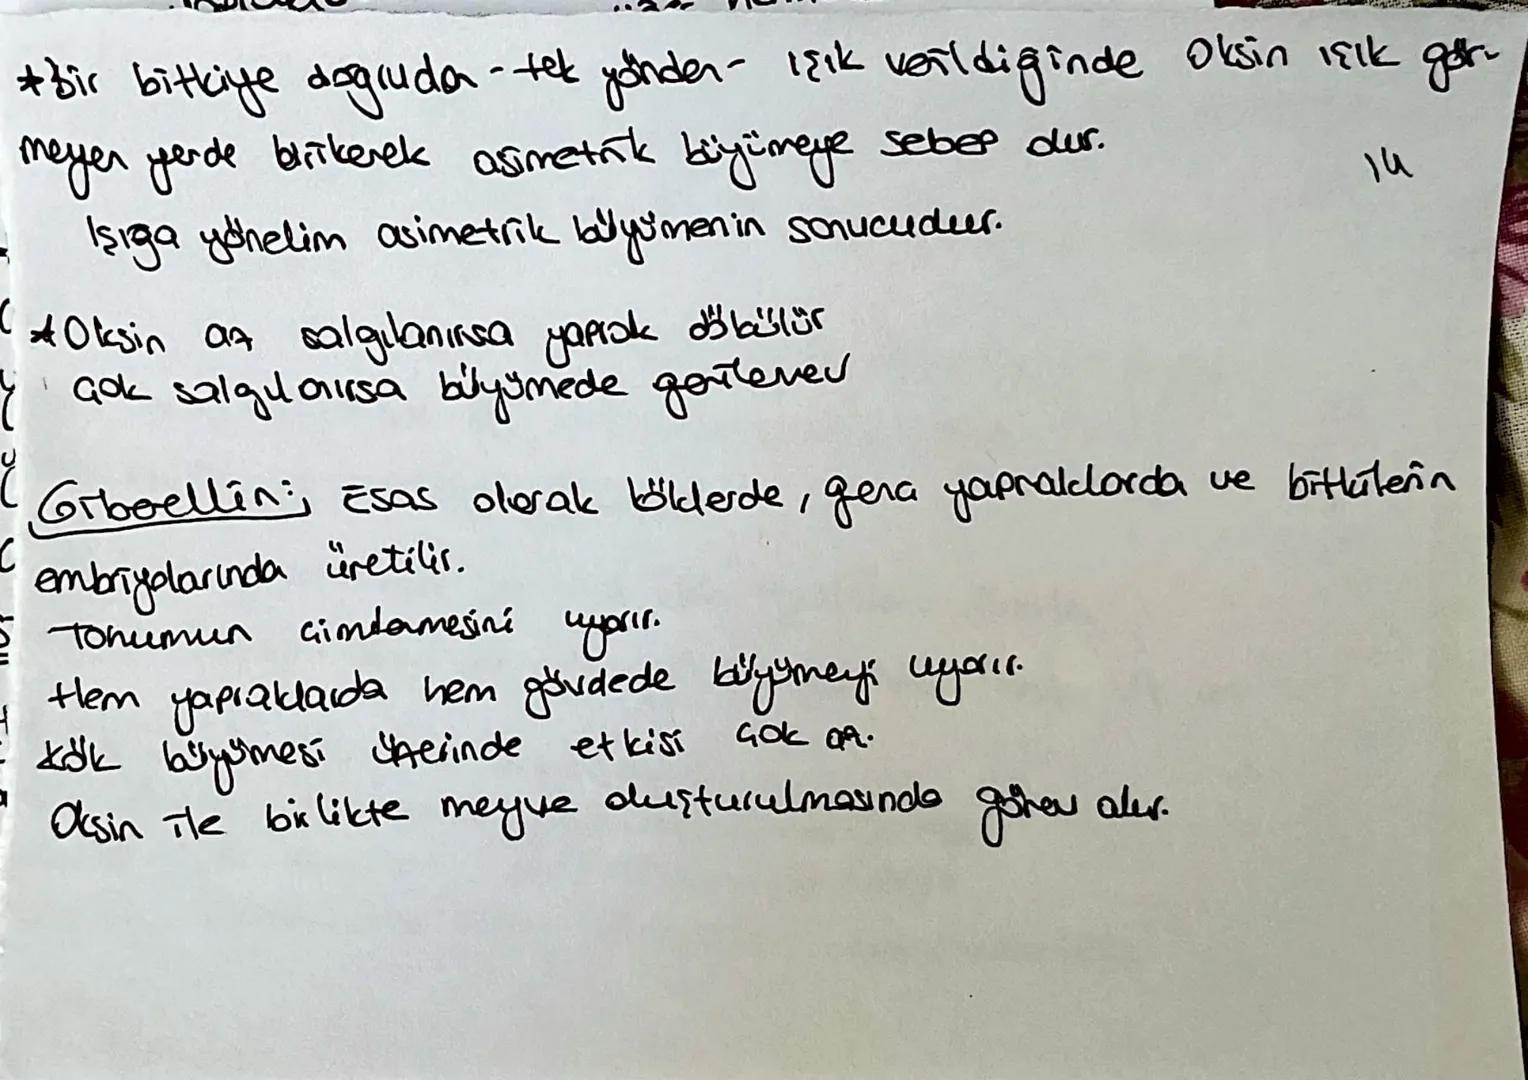 *Bir bitkiye doğrudan - tek yönden - ışık verildiğinde Oksin ışık gör-
meyen yerde birikerek asimetrik büyümeye sebep olur.
14
Işığa yönelim asimetrik büyümenin sonucudur.
*Oksin az salgılanırsa yaprak dökülür
Çok salgılanırsa büyümede gerileme
Giberellin; Esas olarak köklerde, genç yapraklarda ve bitkilerin
embriyolarında üretilir.
Tohumun çimlenmesini uyarır.
Hem yapraklarda hem gövdede büyümeyi uyarır.
Kök büyümesi üzerinde etkisi çok az.
Oksin ile birlikte meyve oluşturulmasında görev alır.